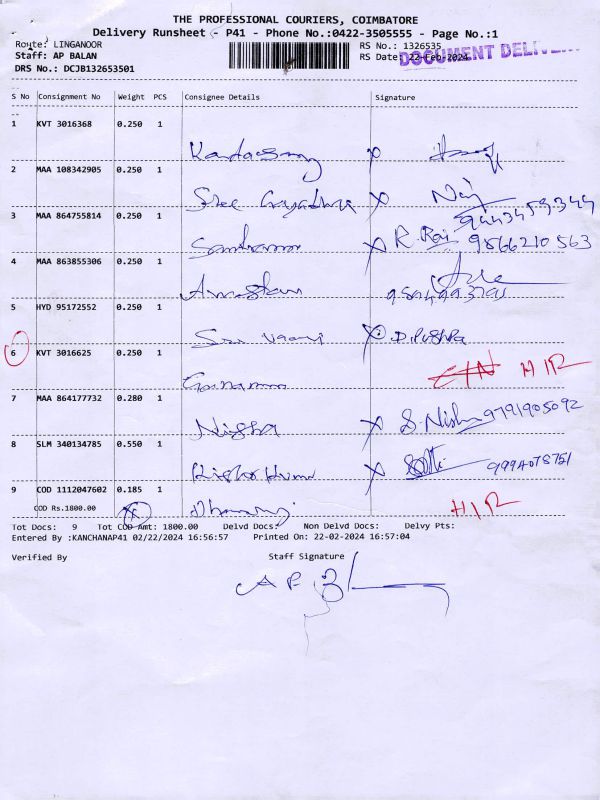 THE PROFESSIONAL COURIERS, COIMBATORE
Delivery Runsheet - P41 - Phone No.:0422-3505555 - Page No.:1
Route: LINGANOOR RS No.: 1326535
Staff: AP BALAN RS Date: 22-Feb-2024 DOCUMENT
DRS No.: DCJB132653501
S No Consignment No Weight PCS Consignee Details Signature
1 KVT 3016368 0.250 1
2 MAA 108342905 0.250 1
Sree Gayathri
9443459344
3 MAA 864755814 0.250 1
R. Raj 9566210563
4 MAA 863855306 0.250 1
5 HYD 95172552 0.250 1
Sri Vaani D. Pushpa
6 KVT 3016625 0.250 1
HIR
7 MAA 864177732 0.280 1
Nisha S. Nisha 9791905092
8 SLM 340134785 0.550 1
Kishor Kumar 9994078751
9 COD 1112047602 0.185 1
COD Rs.1800.00 HIR
Tot Docs: 9 Tot COD Amt: 1800.00 Delvd Docs: Non Delvd Docs: Delvy Pts:
Entered By :KANCHANAP41 02/22/2024 16:56:57 Printed On: 22-02-2024 16:57:04
Verified By Staff Signature